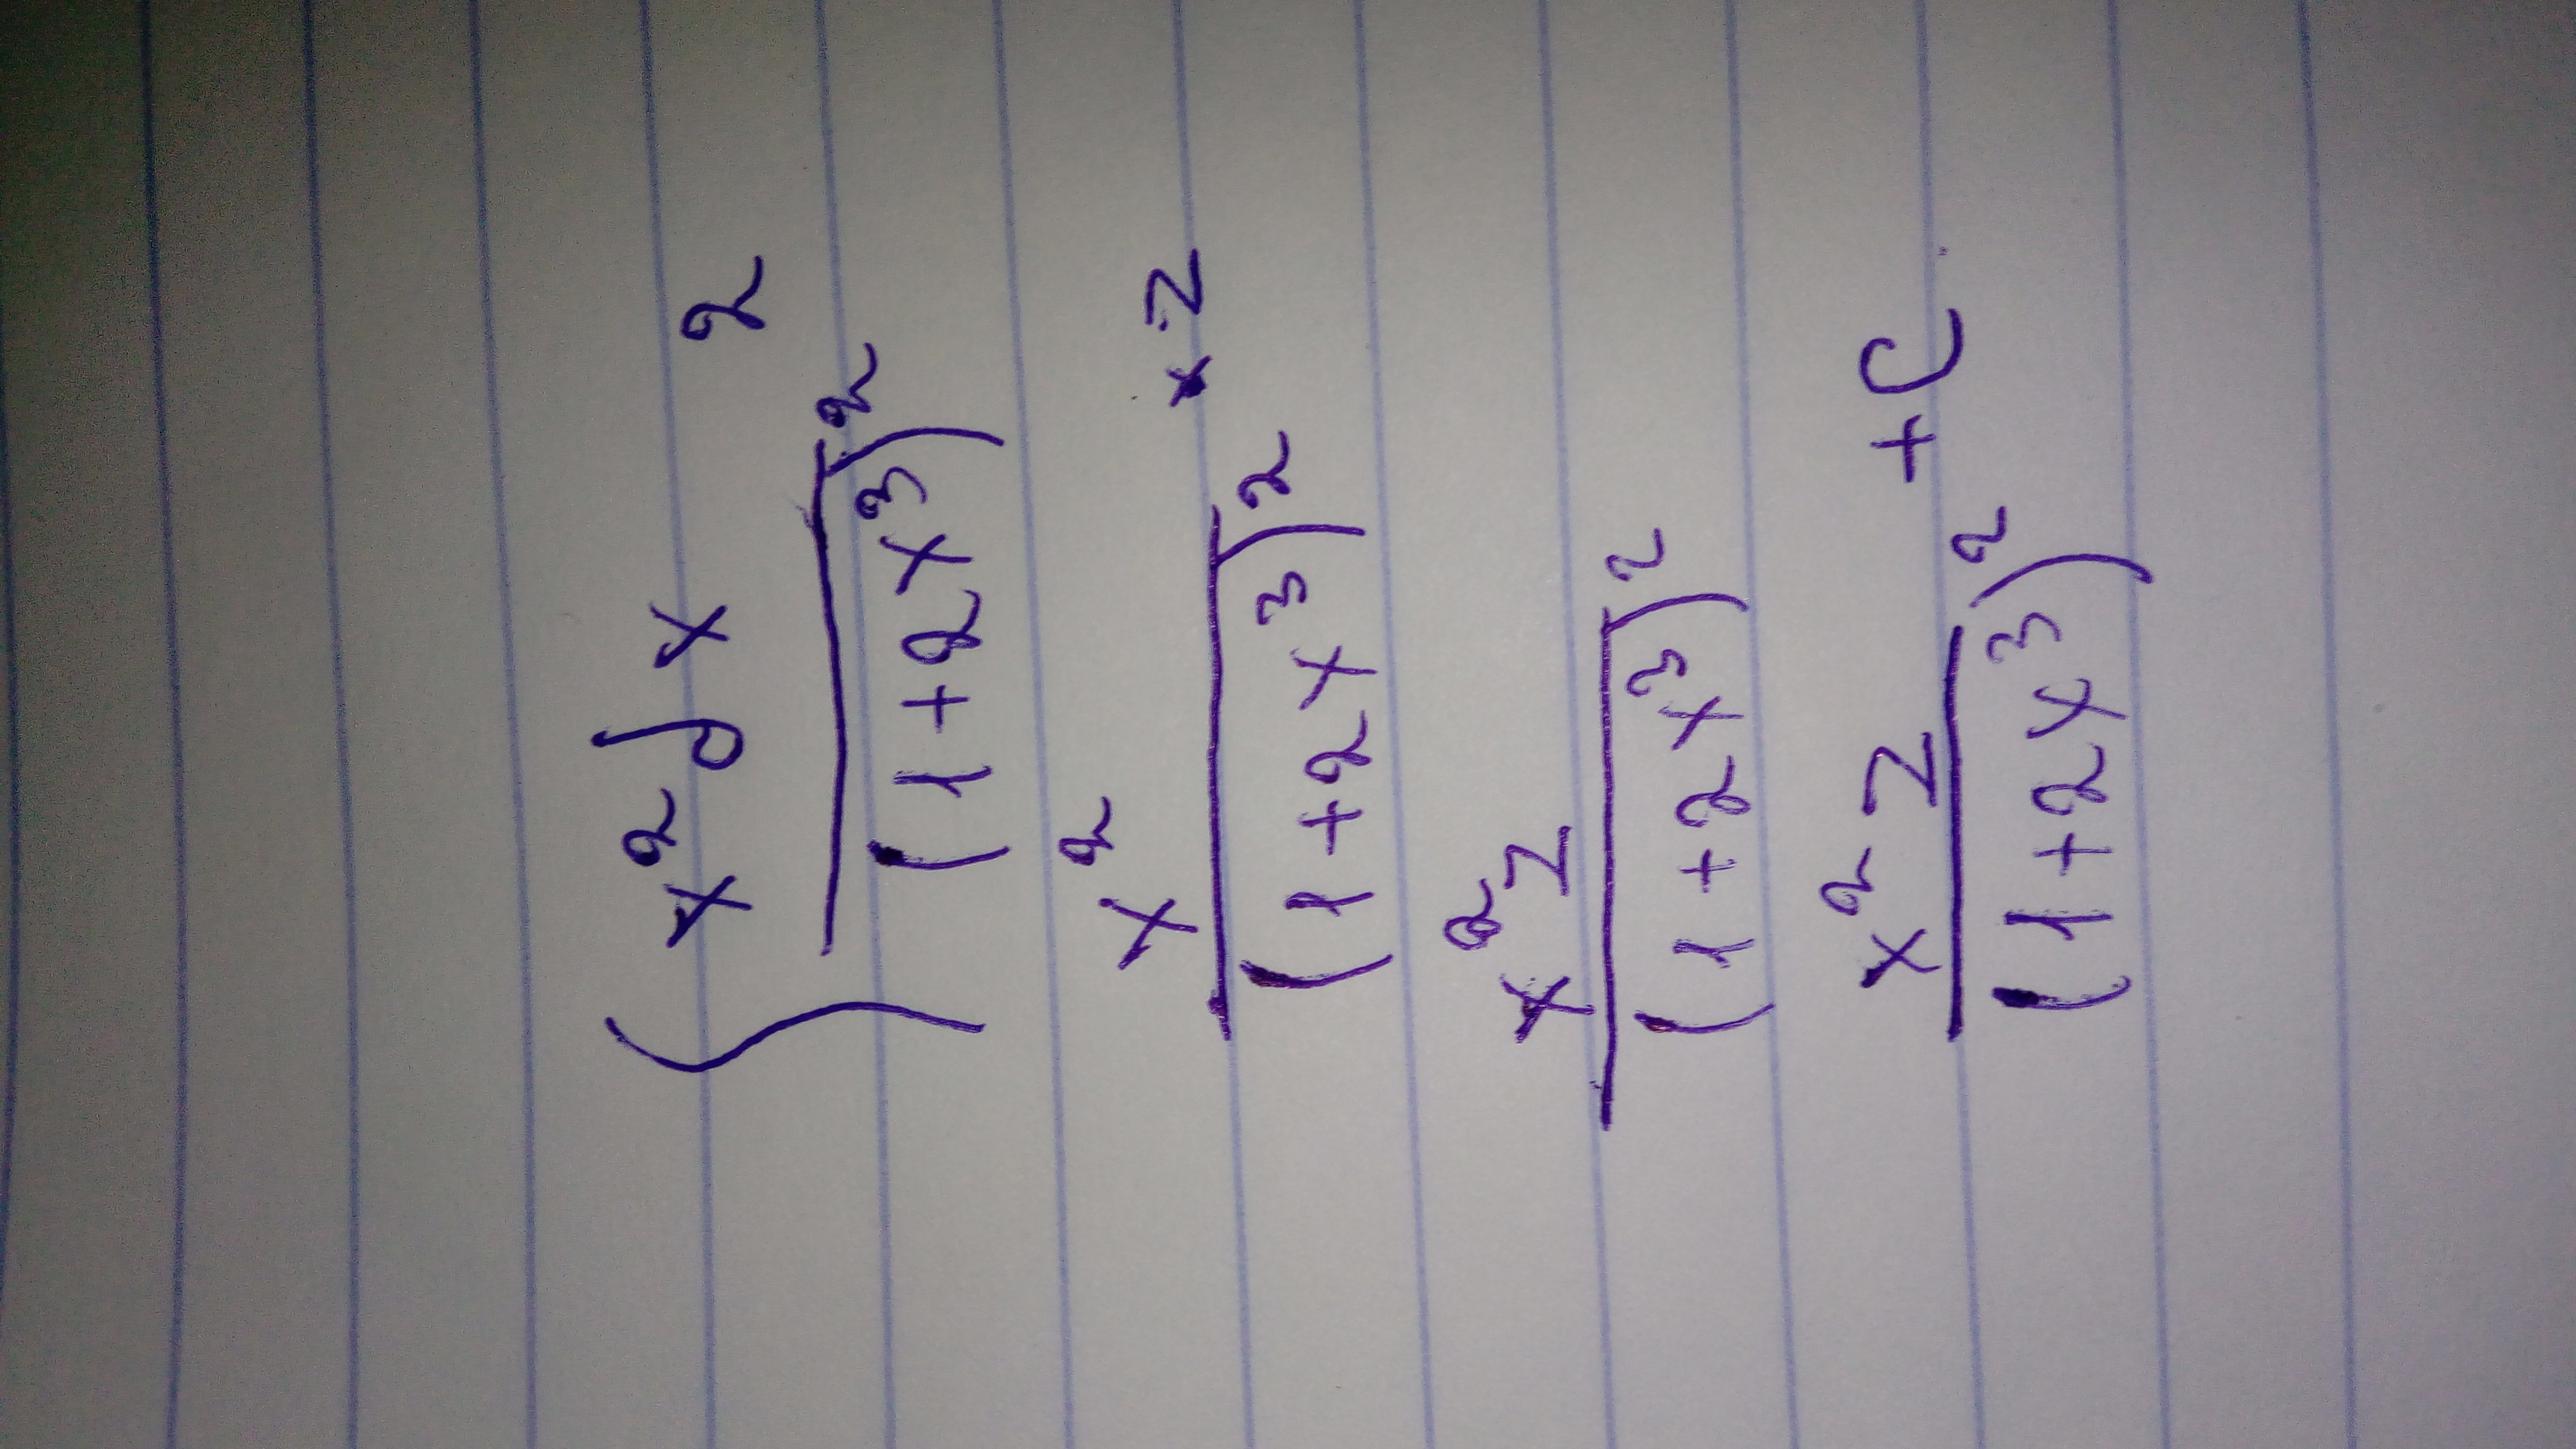 ∫ x² dx / (1+2x³)² 2
x² / (1+2x³)² × z
x² z / (1+2x³)²
x² z / (1+2x³)² + C